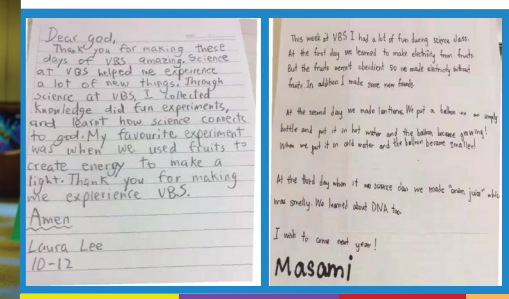 Dear god,
Thank you for making these
days of VBS amazing. Science
at VBS helped me expeirence
a lot of new things. Through
science at VBS, I collected
knowledge did fun experiments,
and learnt how science connects
to god. My favourite experiment
was when we used fruits to
create energy to make a
light. Thank you for making
me explerience VBS.
Amen
Laura Lee
10-12
This week at VBS I had a lot of fun during science class.
At the first day we learned to make electricity from fruits.
But the fruits weren't obedient so we made electricity without
fruits. In addition I made some new friends.
At the second day we made lanterns. We put a balloon on an empty
bottle and put it in hot water and the balloon became growing!
When we put it in cold water and the balloon became smaller!
At the third day when it was science class we made "onion juice" which
was smelly. We learned about DNA too.
I wish to come next year!
Masami